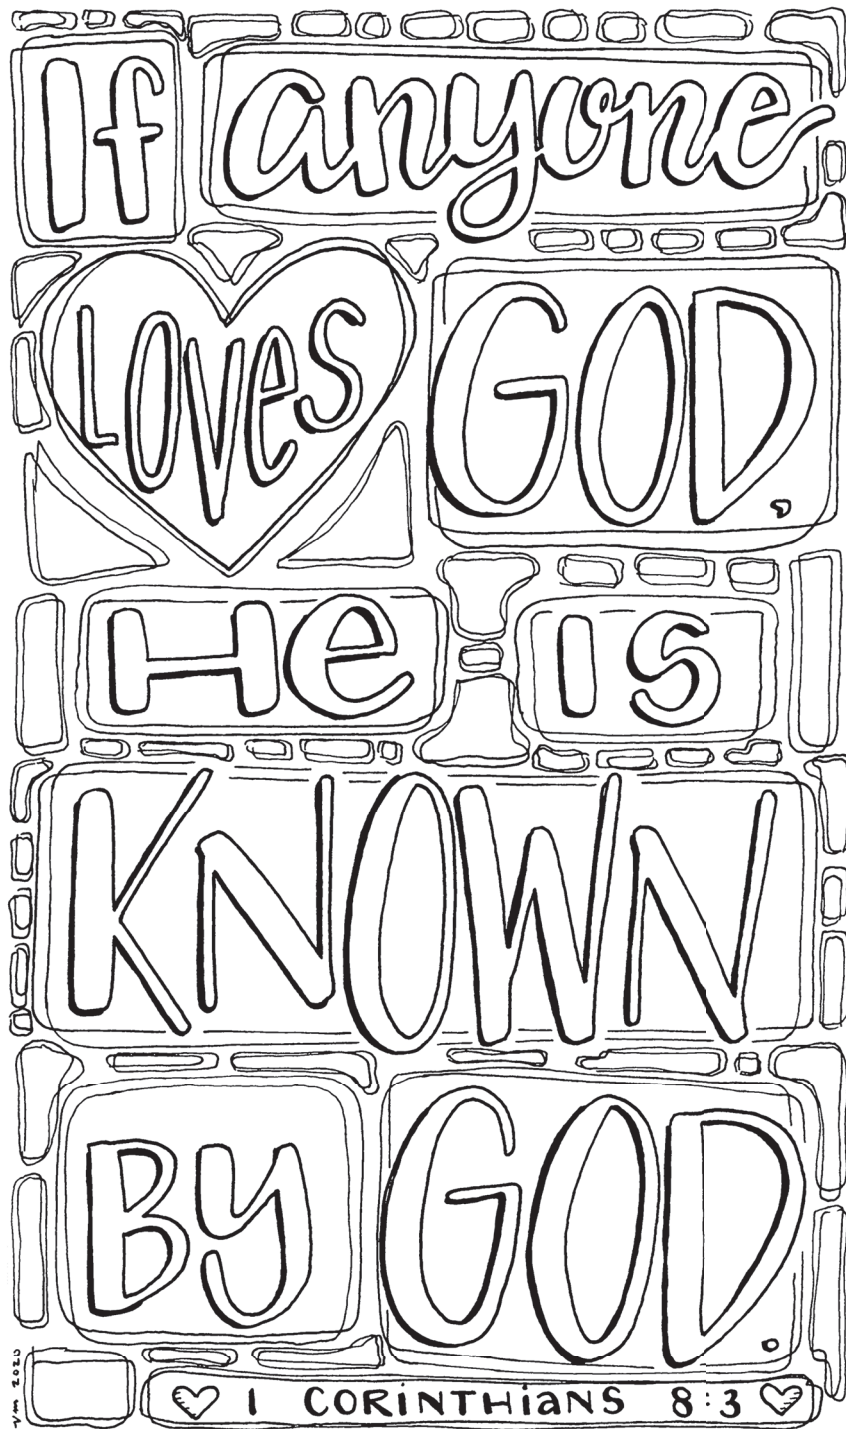 If anyone
LOVes GOD,
He IS
KNOWN
BY GOD.
1 CORiNTHiaNS 8:3
vm 2020